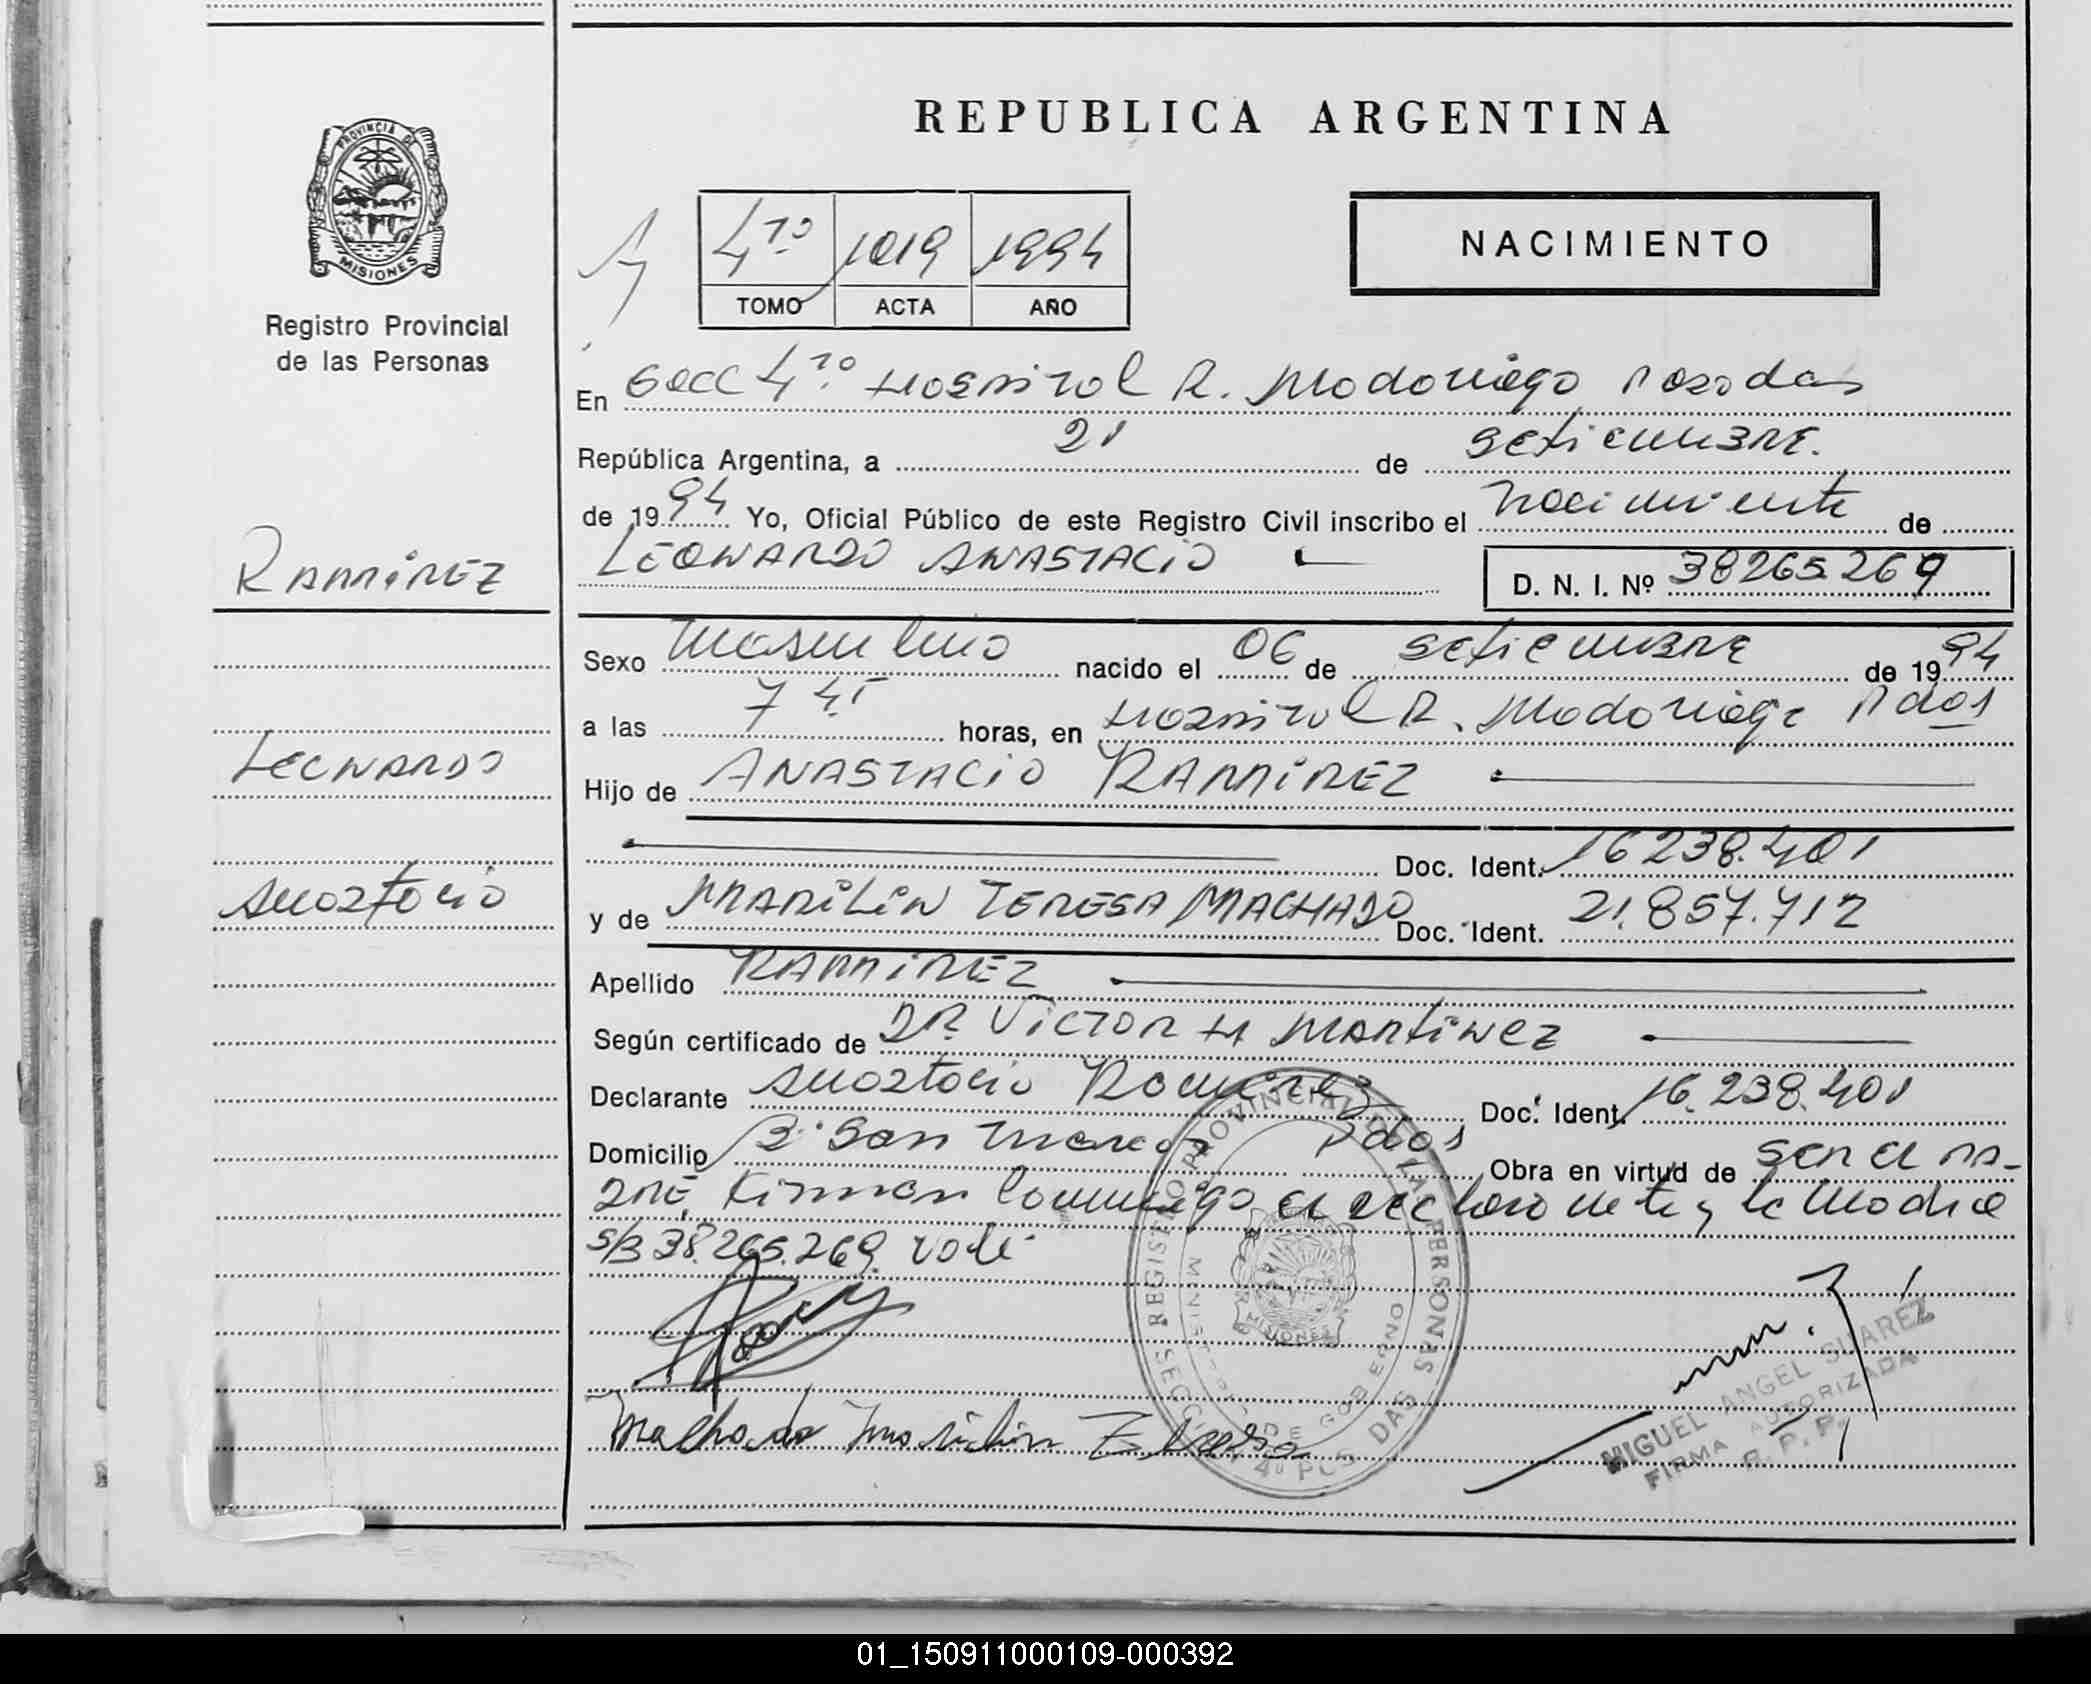 REPUBLICA ARGENTINA
PROVINCIA DE
MISIONES
Registro Provincial
de las Personas
4to 1019 1994
TOMO ACTA AÑO
NACIMIENTO
En Secc 4to Hospital R. Madariaga Posadas
República Argentina, a 21 de setiembre.
de 1994 Yo, Oficial Público de este Registro Civil inscribo el nacimiento de
LEONARDO ANASTACIO D. N. I. Nº 38265269
RAMIREZ
LEONARDO
Anastacio
Sexo Masculino nacido el 06 de setiembre de 1994
a las 7 45 horas, en Hospital R. Madariaga Pdas
Hijo de ANASTACIO RAMIREZ
Doc. Ident. 16238.401
y de MARILIN TERESA MACHADO Doc. Ident. 21.857.712
Apellido RAMIREZ
Según certificado de DR. VICTOR H MARTINEZ
Declarante Anastacio Ramirez Doc. Ident. 16.238.401
Domicilio B. San Marcos Pdas Obra en virtud de ser el pa-
dre, Firman conmigo el declarante y la madre
s/B 38.265.269. vale
Machado Marilin Teresa
REGISTRO PROVINCIAL DE LAS PERSONAS
MINISTERIO DE GOBIERNO
MISIONES
SECC 4º POSADAS
MIGUEL ANGEL SUAREZ
FIRMA AUTORIZADA
R. P. P.
01_150911000109-000392